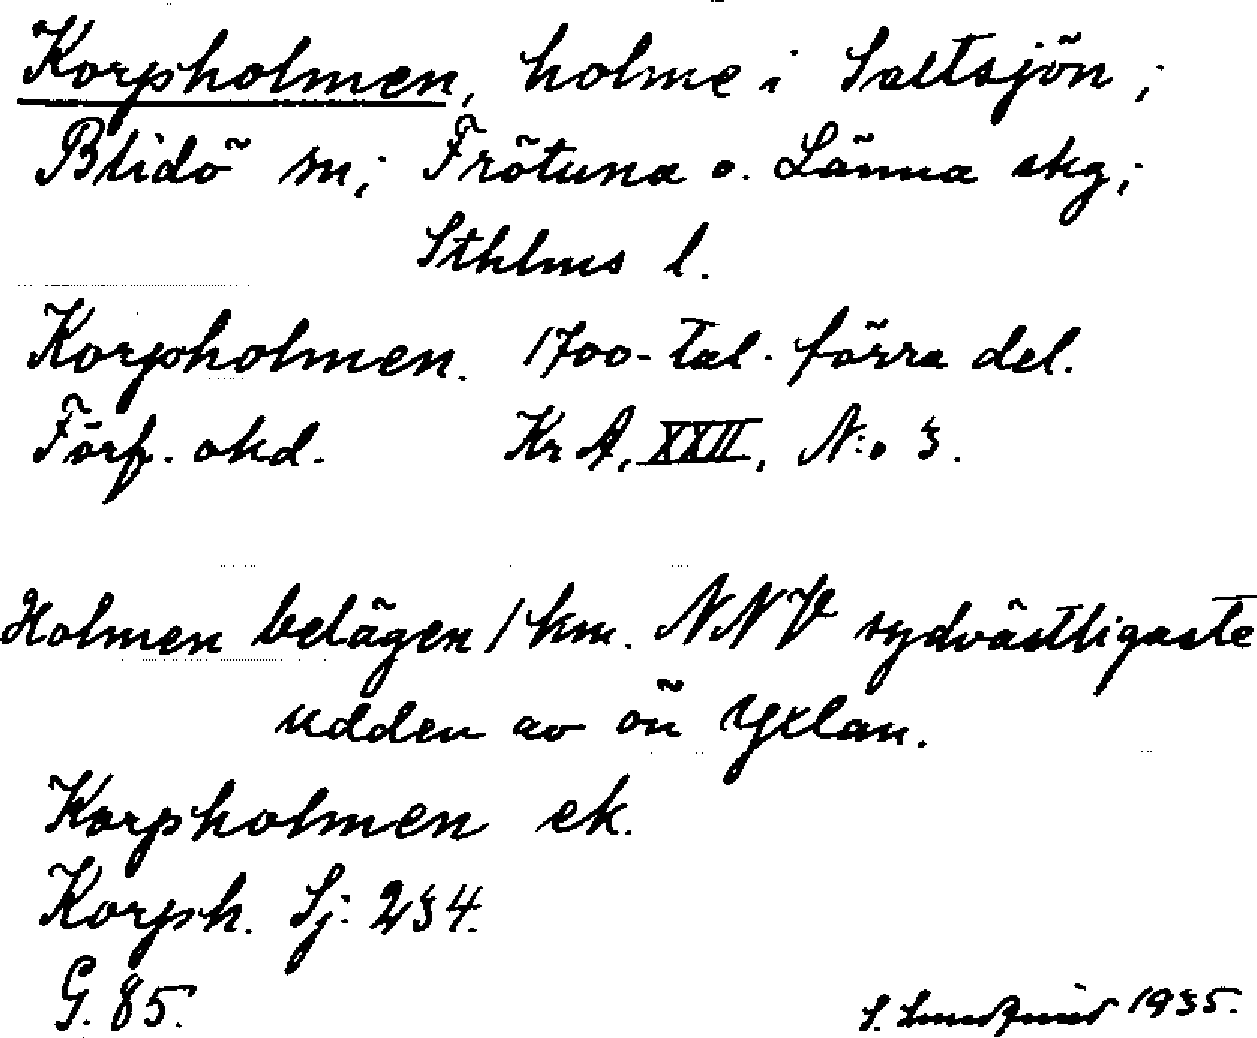 Korpholmen, holme i Saltsjön;
Blidö sn; Frötuna o. Länna skg;
Sthlms l.
Korpholmen. 1700-tal. förra del.
Förf. okd. Kr A, XXII, N:o 3.
Holmen belägen 1 km. NNV sydvästligaste
udden av ön Yxlan.
Korpholmen ek.
Korph. Sj: 234.
G. 85.
S. 1935.